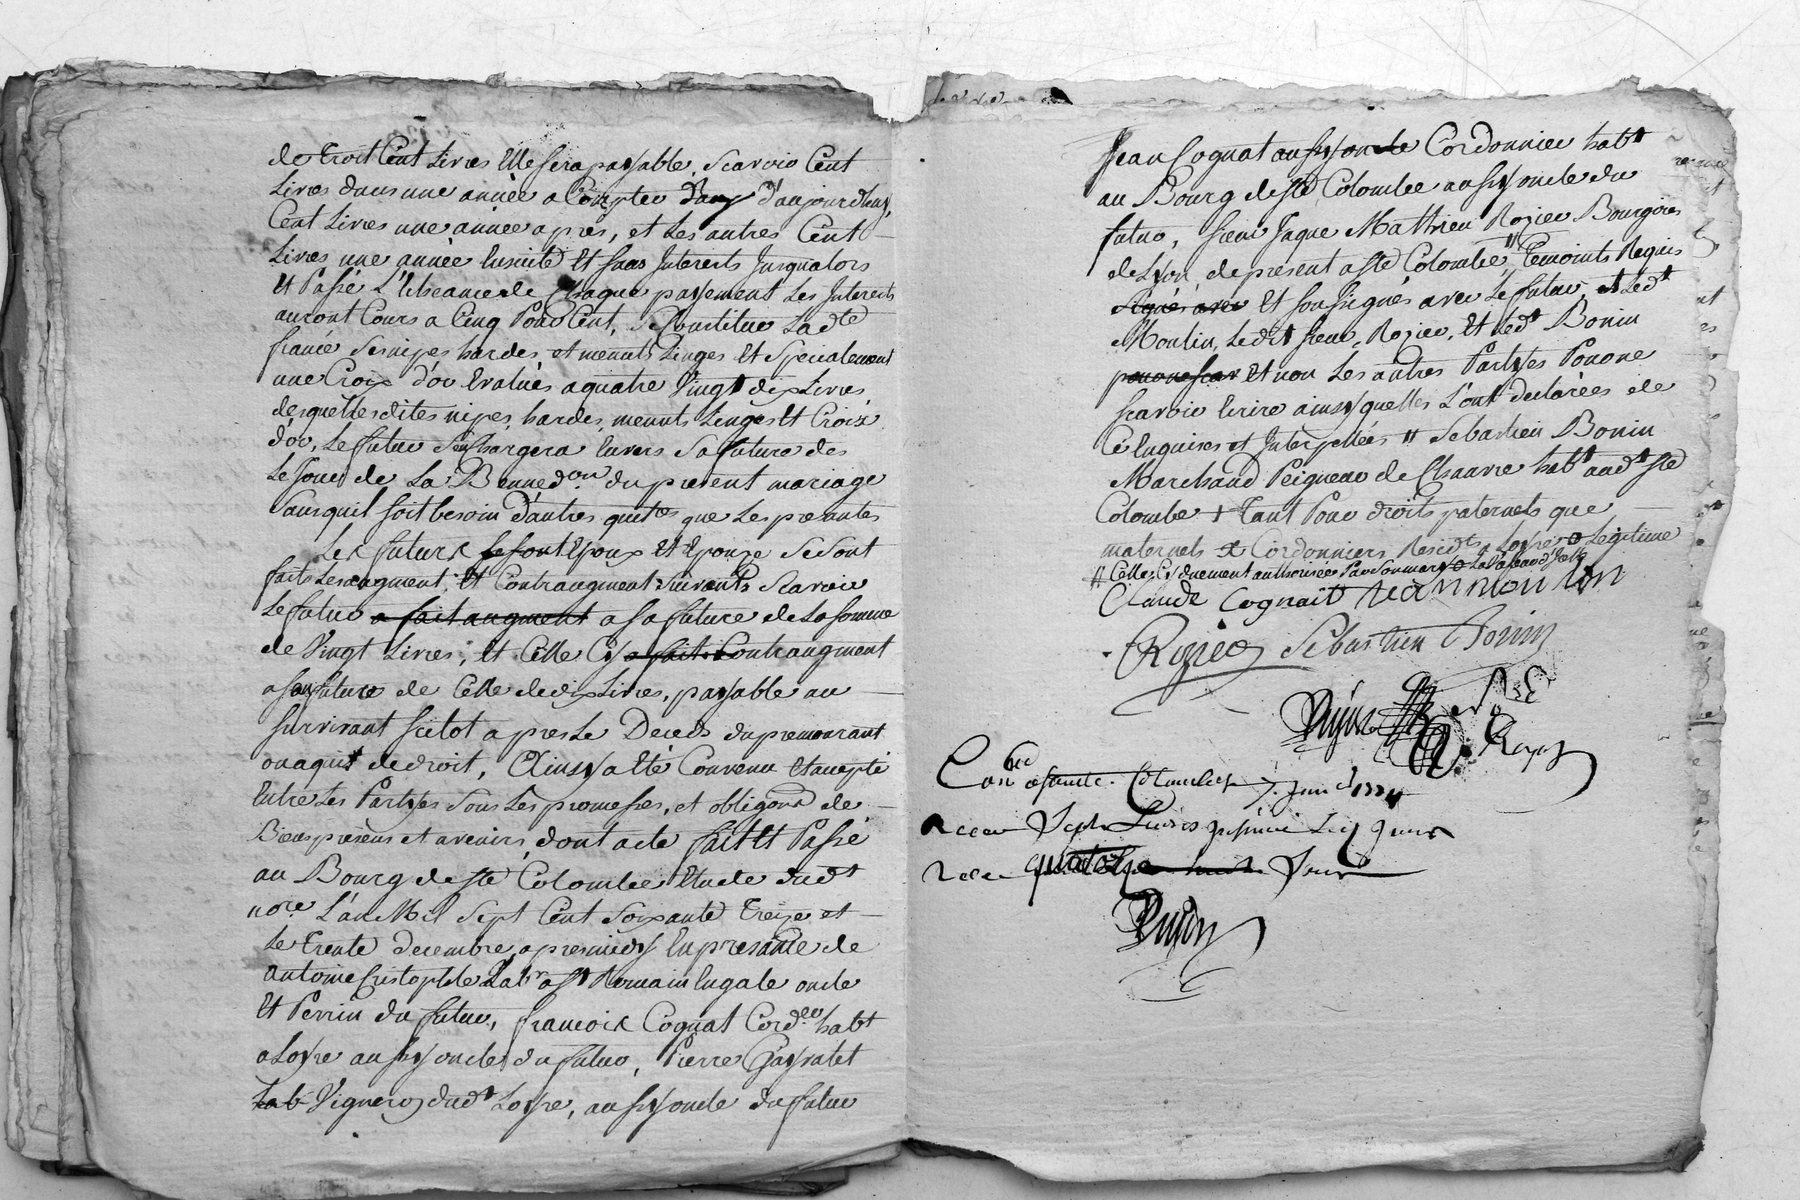 de Troit Cent Livres Elle sera payable, Scavoir Cent
Livres dans une année a Compter d'aujourd'huy,
Cent Livres une année apres, et Les autres Cent
Livres une année Ensuite Et sans Interests Jusqualors
Et Passé L'Echeance de Chaque payement Les Interests
auront Cours a Cinq Pour Cent, Se Constitue Lad.te
, Ses nipes hardes, et menuts Linges Et Specialement
une Croix d'or Evaluës a quatre Vingt dix Livres
desquelles dites nipes, hardes, menuts Linges Et Croix
d'or, Le futur S'en Chargera Envers Sa future des
Le Jour de La Benned.on du present mariage
Sans quil soit besoin d'autres quit.es que Les presentes
Les futurs Epoux Et Epouze Se Sont
faits Les augment Et Contraugment Suivents Scavoir
Le futur a fait augment a Sa future de La Somme
de Vingt Livres, Et Celle Cy a fait Contraugment
a Son futur de Celle de dix Livres, payable au
Survivant Sitot apres Le Deceds du premourant
de droit, Ainsy a Eté Convenu Et accepté
Entre Les Partyes Sous Les promesses, et obligons de
Biens presens et avenirs, dont acte fait Et Passé
au Bourg de Ste Colombe Etude dud.t
no.re L'an Mil Sept Cent Soixante Treize et
Le Trente decembre, apres midy En presance de
antoine Cristophle Lab.r a St Romain Engale oncle
Et Perrin du futur, francois Cognat Cord.er hab.t
a Loyre aussy oncle du futur, Pierre
Lab Vigneron dud.t Loyre, aussy oncle du futur
Jean Cognat aussy oncle Cordonnier hab.t
au Bourg de Ste Colombe aussy oncle du
futur, sieur Jaque Mathieu Rozier Bourgois
de Lyon, de present a Ste Colombe, Temoints Requis
signés avec Et Soussignés avec Le futur, et Led.t
Moulin, Ledit sieur Rozier, Et Led.t Bonin
Et non Les autres Partyes Pour ne
Scavoir Ecrire ainsy quelles L'ont declarées de
Ce Enquises et Interpellées // Sebastien Bonin
Marchand Peigneur de Chanvre hab.t aud.t Ste
Colombe + Tant Pour droits paternels que
maternels Cordonniers Resid.ts a Loyre Legitime
// Celle Cy duement authorisée Par Son mary
Claude Cognait Jean moulin
Rozier Sebastien Bonin
Con.lé a Sainte Colombe Le 7. Janv.er 1774
Receu Sept Livres
Receu